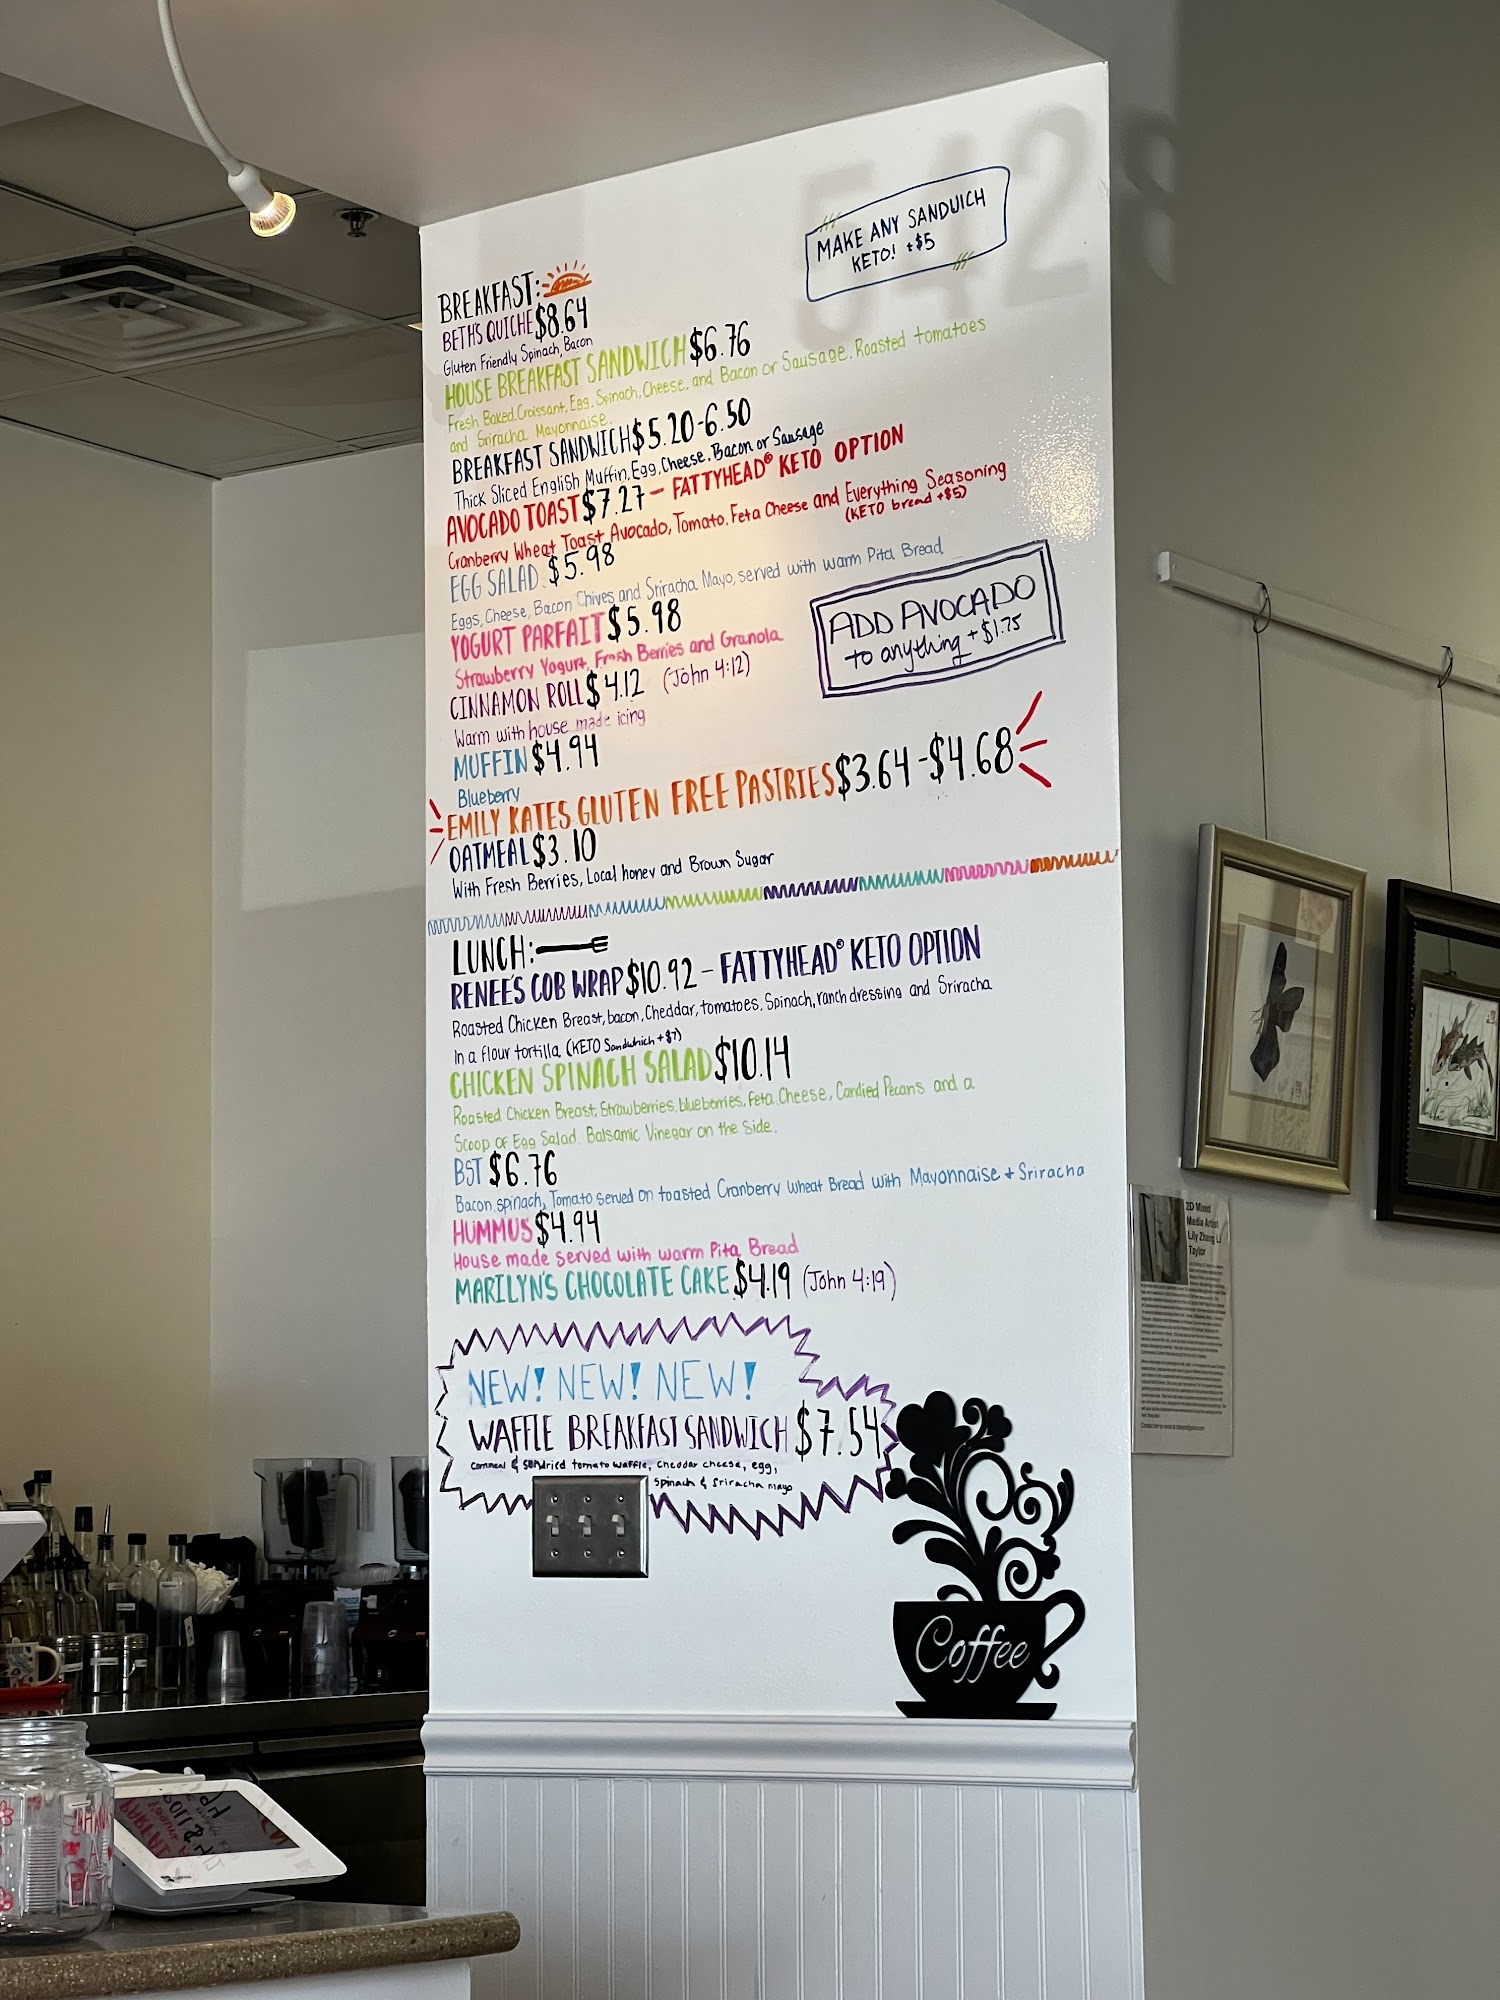 5428
MAKE ANY SANDWICH
KETO! +$5
BREAKFAST:
BETH'S QUICHE $8.64
Gluten Friendly Spinach, Bacon
HOUSE BREAKFAST SANDWICH $6.76
Fresh Baked Croissant, Egg, Spinach, Cheese, and Bacon or Sausage. Roasted tomatoes
and Sriracha Mayonnaise.
BREAKFAST SANDWICH $5.20-6.50
Thick Sliced English Muffin, Egg, Cheese, Bacon or Sausage
AVOCADO TOAST $7.27 - FATTYHEAD® KETO OPTION
Cranberry Wheat Toast, Avocado, Tomato, Feta Cheese and Everything Seasoning
(KETO bread +$5)
EGG SALAD $5.98
Eggs, Cheese, Bacon Chives and Sriracha Mayo, served with warm Pita Bread
YOGURT PARFAIT $5.98
Strawberry Yogurt, Fresh Berries and Granola
ADD AVOCADO
to anything +$1.75
CINNAMON ROLL $4.12 (John 4:12)
Warm with house made icing
MUFFIN $4.94
Blueberry
EMILY KATES GLUTEN FREE PASTRIES $3.64-$4.68
OATMEAL $3.10
With Fresh Berries, Local honey and Brown Sugar
LUNCH:
RENEE'S COB WRAP $10.92 - FATTYHEAD® KETO OPTION
Roasted Chicken Breast, bacon, Cheddar, tomatoes, Spinach, ranch dressing and Sriracha
In a flour tortilla (KETO Sandwhich +$7)
CHICKEN SPINACH SALAD $10.14
Roasted Chicken Breast, Strawberries, blueberries, Feta Cheese, Candied Pecans and a
Scoop of Egg Salad. Balsamic Vinegar on the Side.
BST $6.76
Bacon, spinach, Tomato served on toasted Cranberry wheat Bread with Mayonnaise + Sriracha
HUMMUS $4.94
House made served with warm Pita Bread
MARILYN'S CHOCOLATE CAKE $4.19 (John 4:19)
NEW! NEW! NEW!
WAFFLE BREAKFAST SANDWICH $7.54
Cornmeal & sundried tomato waffle, cheddar cheese, egg,
spinach & sriracha mayo
Coffee
2D Mixed
Media Artist
Lily Zhang Li
Taylor